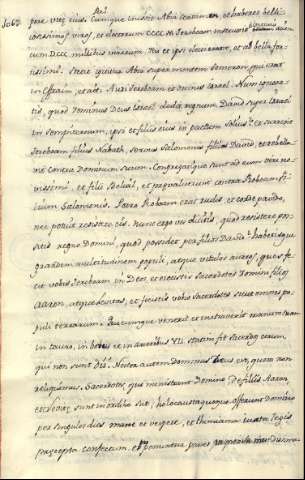 cosissimos viros, et electorum CCCC m̃ Jeroboam instruxit
tissimi. Stetit igitur Abia super montem Semeron qui erat
in Efraim, et ait. Audi Jeroboam et omnis Israel. Num ignora-
tis, quod Dominus Deus Israel dederit regnum David super Israel
in sempiternum, ipsi et filiis eius in pactum salis? et surrexit
Jeroboam filius Nabath, servus Salomonis filii David, et rebella-
vit contra Dominum suum. Congregatique sunt ad eum viri va-
nissimi, et filii Belial, et praevaluerunt contra Roboam fi-
lium Salomonis. Porro Roboam erat rudis et corde pavido,
nec potuit resistere eis. Nunc ergo vos dicitis, quod resistere pos-
sitis regno Domini, quod possidet per filios David? habetisque
grandem multitudinem populi, atque vitulos aureos, quos fe-
cit vobis Jeroboam in Deos. et eiecistis sacerdotes Domini filios
Aaron, atque Levitas, et fecistis vobis sacerdotes sicut omnes po-
puli terrarum. Quicumque venerit et initiaverit manum suam
in tauro, in bobus et in arietibus VII. statim fit sacerdos eorum
qui non sunt Dii. Noster autem Dominus Deus est, quem non
relinquimus. Sacerdotes que ministrant Domino De filiis Aaron,
et Levitae sunt in ordine suo, holocausta quoque offerunt Domino
per singulos dies mane et vespere, et thimiama iuxta Legis
praecepta confectum, et proponuntur panes